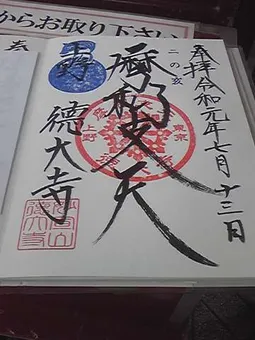 からお取り下さい
奉拝令和元年七月十三日
二の亥
摩利支天
上野
徳大寺
奉
上野
東京